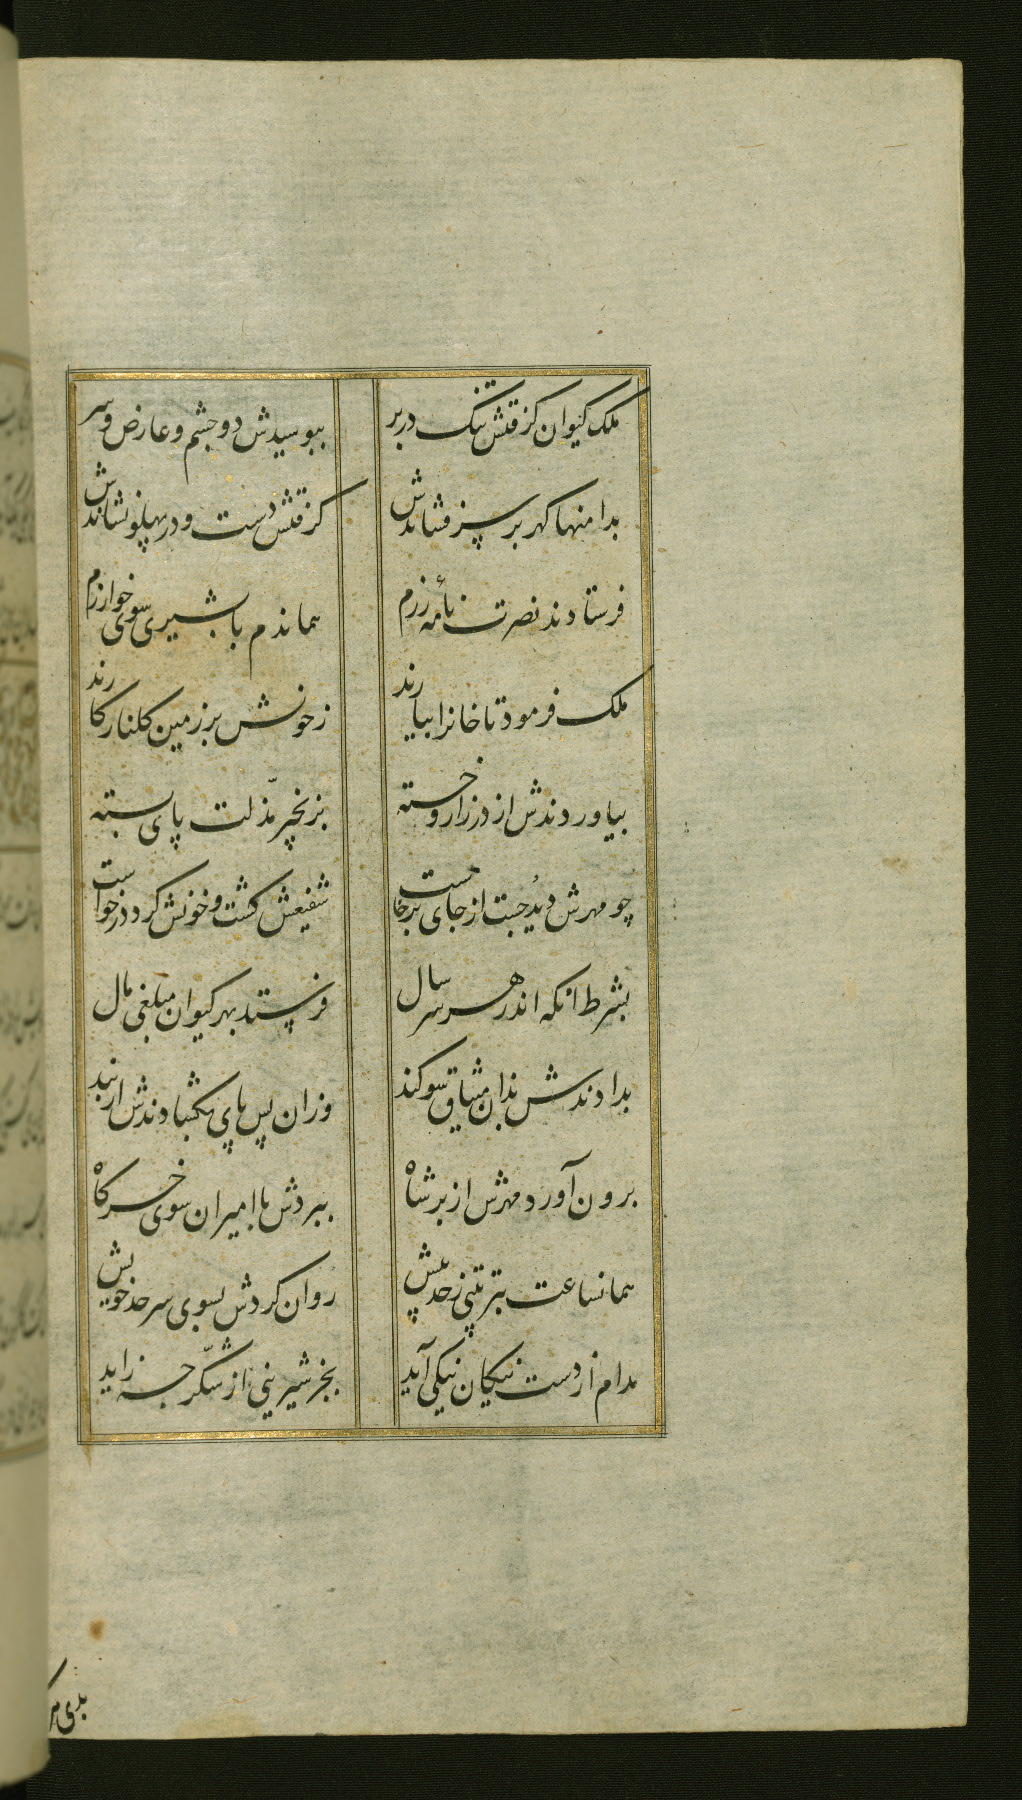 ملک کیوان کرفتش تنک در بر
ببوسیدش دو چشم و عارض و سر
بدامنها کهر بر سر فشاندش
کرفتش دست و در پهلو نشاندش
فرستادند نصرت نامهٔ رزم
هماندم با بشیری سوی خوارزم
ملک فرمود تا خانرا بیارند
زخونش بر زمین کلنار کارند
بیاوردندش از در زار و خسته
بزنجیر مذّلت پای بسته
چو مهرش دید جست از جای برخاست
شفیعش کشت و خونش کرد درخواست
بشرط انکه اندر هر سر سال
فرستد بهر کیوان مبلغی مال
بدادندش بدان میثاق سوکند
وزان پس پای بکشادندش از بند
برون آورد مهرش از بر شاه
ببردش با امیران سوی خرکاه
همانساعت بترتیبی زحد بیش
روان کردش بسوی سرحد خویش
مدام از دست نیکان نیکی آید
بجز شیرینی از شکّر چه زاید
بدی